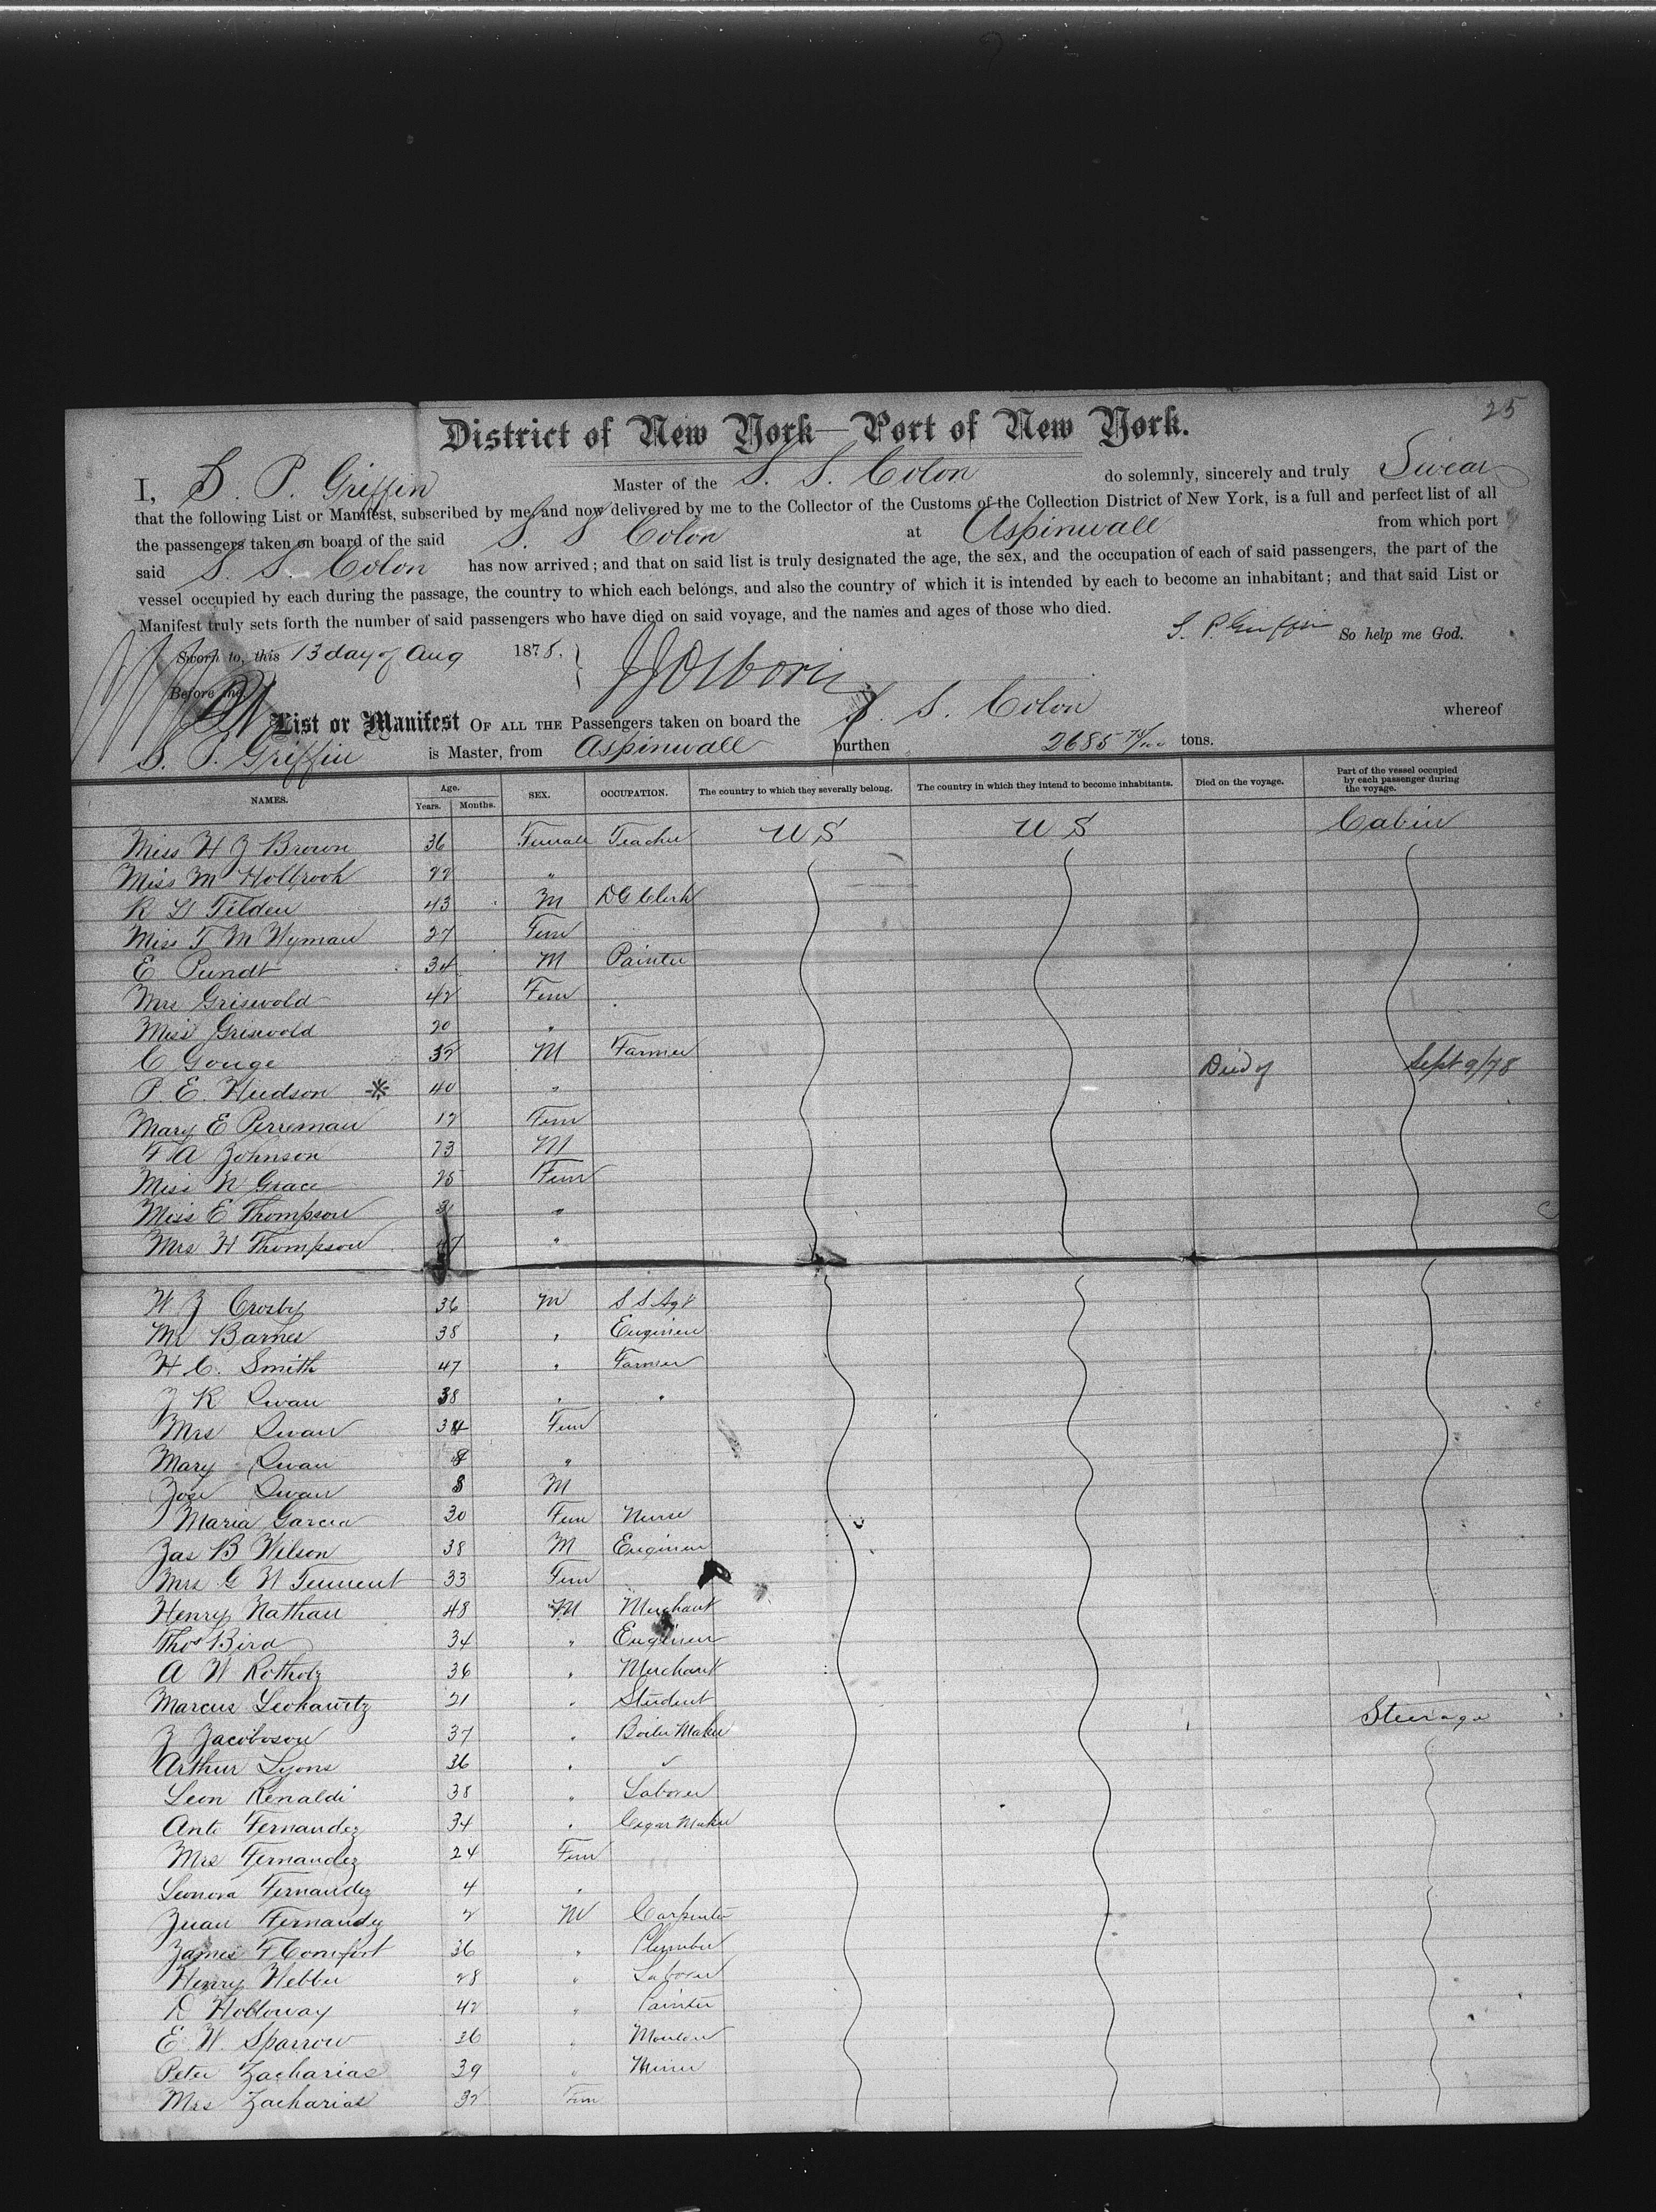 25
District of New York—Port of New York.
I, S. P. Griffin Master of the S. S. Colon do solemnly, sincerely and truly Swear
that the following List or Manifest, subscribed by me, and now delivered by me to the Collector of the Customs of the Collection District of New York, is a full and perfect list of all
the passengers taken on board of the said S. S Colon at Aspinwall from which port
said S. S. Colon has now arrived; and that on said list is truly designated the age, the sex, and the occupation of each of said passengers, the part of the
vessel occupied by each during the passage, the country to which each belongs, and also the country of which it is intended by each to become an inhabitant; and that said List or
Manifest truly sets forth the number of said passengers who have died on said voyage, and the names and ages of those who died.
S. P. Griffin So help me God.
Sworn to, this 13 day of Aug 1878.
J J Osborn
Before me,
List or Manifest OF ALL THE Passengers taken on board the S. S. Colon whereof
S. P. Griffin is Master, from Aspinwall burthen 2685 tons.
NAMES. Age. Years. Months. SEX. OCCUPATION. The country to which they severally belong. The country in which they intend to become inhabitants. Died on the voyage. Part of the vessel occupied by each passenger during the voyage.
Miss H J Brown 36 Female Teacher U S U S Cabin
Miss M Holbrook 22 "
R H Tilden 43 M Clerk
Miss T M Wyman 27 Fem
E Pundt 34 M Painter
Mrs Griswold 42 Fem
Miss Griswold 20 "
C Gouge 32 M Farmer
P. E. Hudson * 40 " Died of Sept 9/78
Mary E Perreman 12 Fem
F A Johnson 73 M
Miss N Grace 25 Fem
Miss E Thompson "
Mrs H Thompson 47 "
W J Crosby 36 M S S Agt
Mr Barnes 38 " Engineer
H C. Smith 47 " Farmer
J R Swan 38 " "
Mrs Swan 34 Fem
Mary Swan "
Jose Swan 8 M
Maria Garcia 30 Fem Nurse
Jas B Wilson 38 M Engineer
Mrs G W Tennent 33 Fem
Henry Nathan 48 M Merchant
Thos Bird 34 " Engineer
A W Rotholz 36 " Merchant
Marcus 21 " Student
J Jacobson 37 " Boiler Maker Steerage
Arthur Lyons 36 " "
Leon Renaldi 38 " Laborer
Anto Fernandez 34 " Cigar Maker
Mrs Fernandez 24 Fem
Leonora Fernandez 4 "
Juan Fernandez 2 M Carpenter
James F Comfort 36 " Plumber
Henry Webber 28 " Laborer
D Holloway 42 " Painter
E. W. Sparrow 36 " Moulder
Peter Zacharias 39 " Miner
Mrs Zacharias 32 Fem